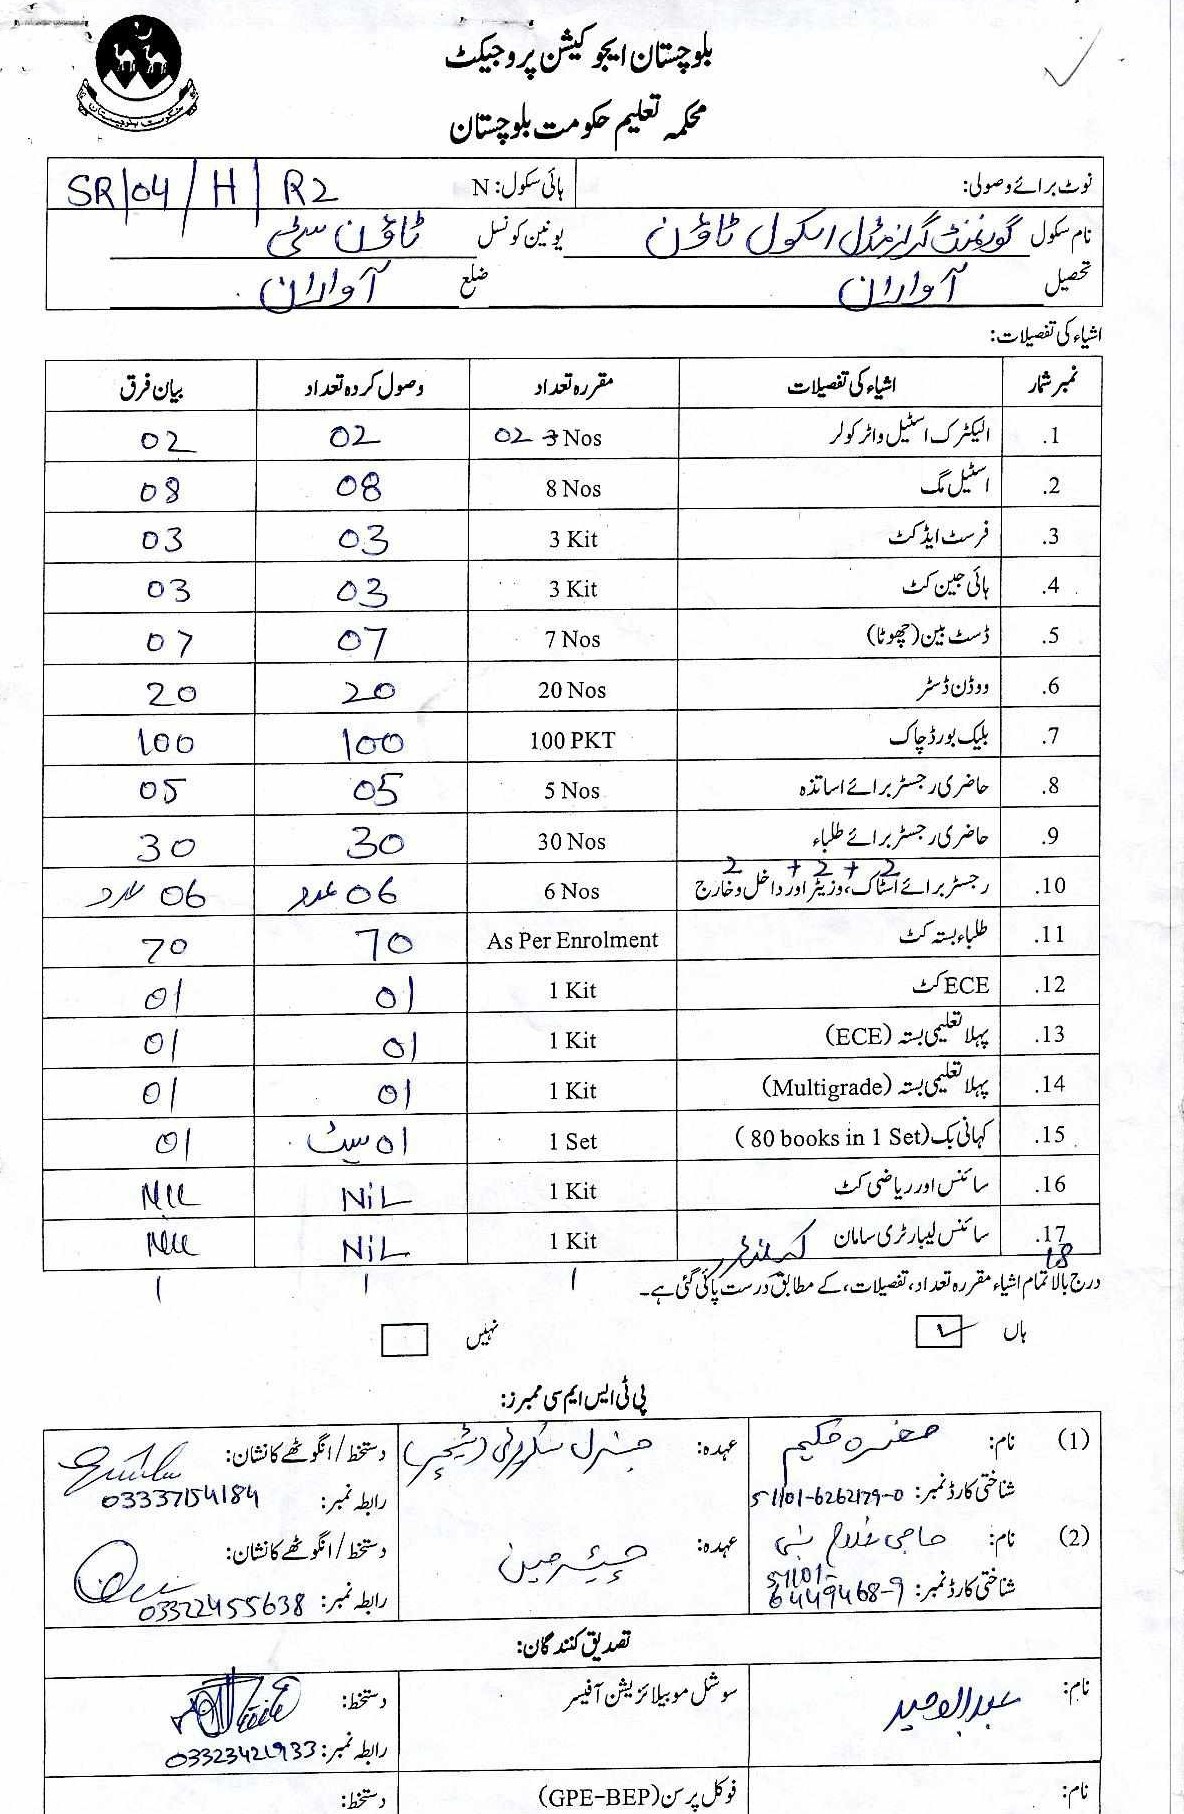 بلوچستان ایجوکیشن پروجیکٹ
محکمہ تعلیم حکومت بلوچستان
نوٹ برائے وصولی: ہائی سکول: N SR/04/H/R2
نام سکول گورنمنٹ گرلز مڈل اسکول ٹاؤن یونین کونسل ٹاؤن سٹی
تحصیل آواران ضلع آواران
اشیاء کی تفصیلات:
نمبر شمار اشیاء کی تفصیلات مقررہ تعداد وصول کردہ تعداد بیان فرق
1. الیکٹرک اسٹیل واٹر کولر 02 3 Nos 02 02
2. اسٹیل مگ 8 Nos 08 08
3. فرسٹ ایڈ کٹ 3 Kit 03 03
4. ہائی جین کٹ 3 Kit 03 03
5. ڈسٹ بین (چھوٹا) 7 Nos 07 07
6. ووڈن ڈسٹر 20 Nos 20 20
7. بلیک بورڈ چاک 100 PKT 100 100
8. حاضری رجسٹر برائے اساتذہ 5 Nos 05 05
9. حاضری رجسٹر برائے طلباء 30 Nos 30 30
2 + 2 + 2
10. رجسٹر برائے اسٹاک، وزیٹر اور داخل وخارج 6 Nos 06 عدد 06 عدد
11. طلباء بستہ کٹ As Per Enrolment 70 70
12. ECE کٹ 1 Kit 01 01
13. پہلا تعلیمی بستہ (ECE) 1 Kit 01 01
14. پہلا تعلیمی بستہ (Multigrade) 1 Kit 01 01
15. کہانی بک (80 books in 1 Set) 1 Set 01 سیٹ 01
16. سائنس اور ریاضی کٹ 1 Kit NiL NiL
17. سائنس لیبارٹری سامان 1 Kit NiL NiL
18 1 1 1
درج بالا تمام اشیاء مقررہ تعداد، تفصیلات، کے مطابق درست پائی گئی ہے۔
ہاں نہیں
پی ٹی ایس ایم سی ممبرز:
(1) نام: صغرہ حکیم عہدہ: جنرل سکروٹری (ٹیچر) دستخط / انگوٹھے کا نشان:
شناختی کارڈ نمبر: 51101-6262179-0 رابطہ نمبر: 03337154184
(2) نام: حاجی غلام نبی عہدہ: چیئرمین دستخط / انگوٹھے کا نشان:
شناختی کارڈ نمبر: 51101-6449468-9 رابطہ نمبر: 03322455638
تصدیق کنندگان:
نام: عبدالوحید سوشل موبیلائزیشن آفیسر دستخط:
رابطہ نمبر: 03323421933
نام: فوکل پرسن (GPE-BEP) دستخط: